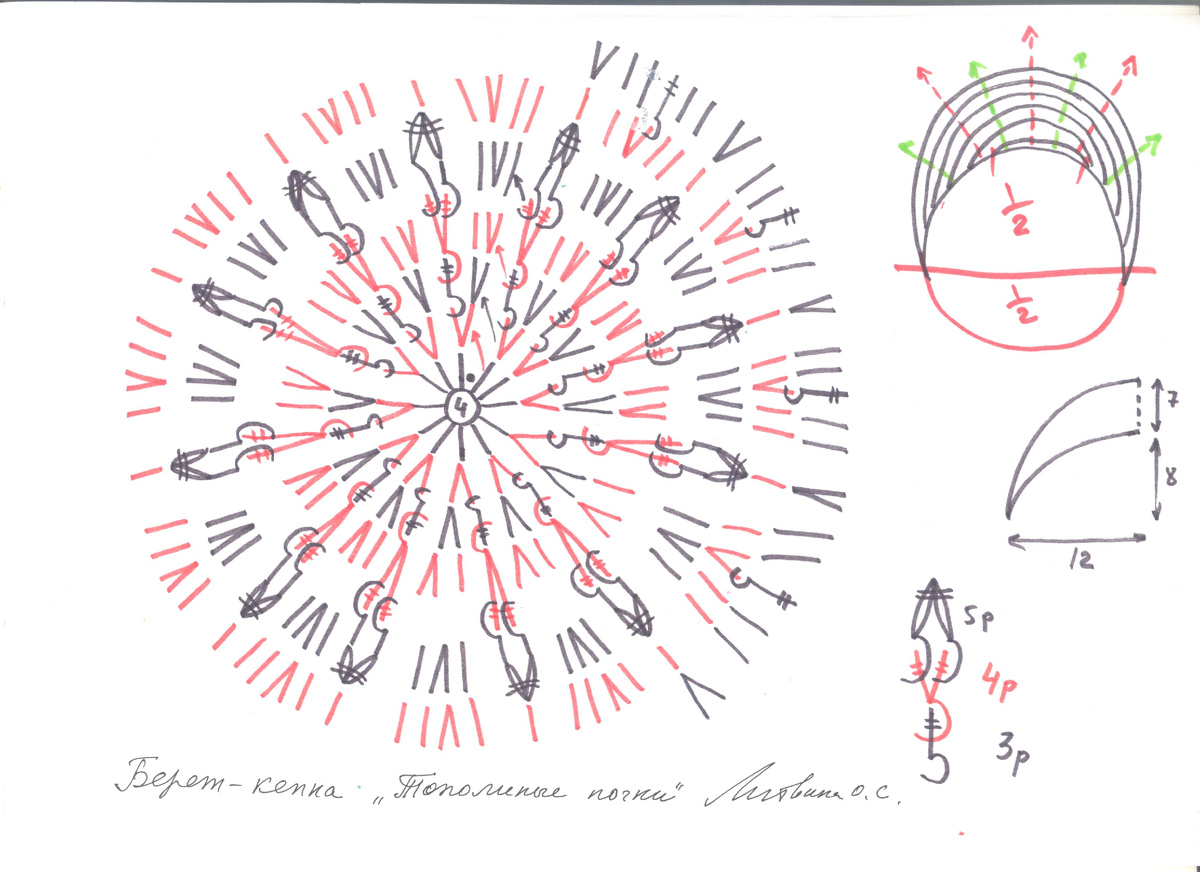 4
1/2
1/2
7
8
12
5р
4р
3р
Берет-кепка „Тополиные почки" Литвина О.С.